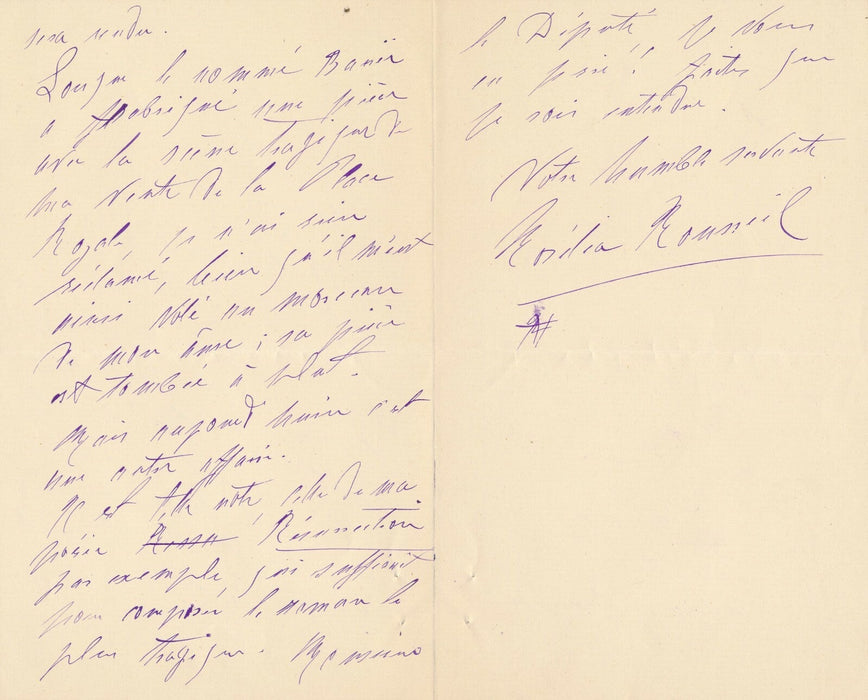 sera rendu.
Lorsque le nommé
a fabriqué une pièce
avec la scène tragique de
ma Vente de la Place
Royale, je n'ai rien
réclamé, bien qu'il m'eut
ainsi volé un morceau
de mon âme ; sa pièce
est tombée à plat.
Mais aujourd'huin c'est
une autre affaire.
Il est telle note, celle de ma
poésie Résurrection
par exemple, qui suffirait
pour composer le roman le
plus tragique. Monsieur
le Député je vous
en prie ! faites que
je sois entendue.
Votre humble servante
Rosélia Rousseil